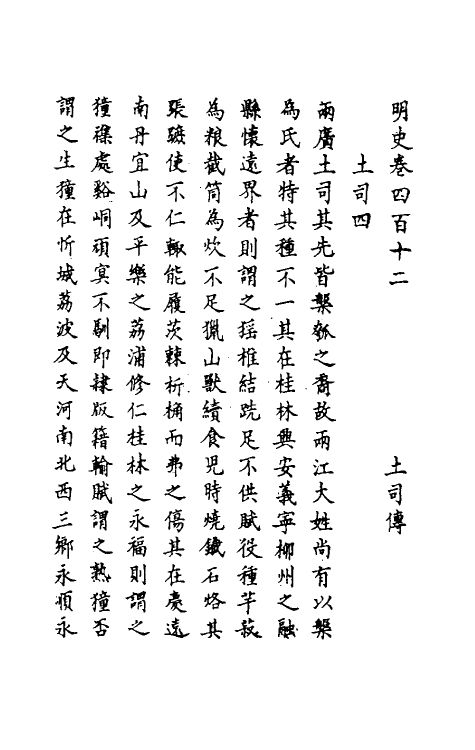 明史卷四百十二 土司傳
土司四
兩廣土司其先皆槃瓠之裔故兩江大姓尚有以槃
為氏者特其種不一其在桂林興安義寧柳州之融
縣懷遠界者則謂之猺椎結跣足不供賦役種芋菽
為粮截筒為炊不足獵山獸續食児時燒鐵石烙其
張蹠使不仁輙能履茨棘枿桷而弗之傷其在慶遠
南丹宜山及平樂之荔浦修仁桂林之永福則謂之
獞襍處谿峒頑冥不馴即隸版籍輸賦謂之熟獞否
謂之生獞在忻城荔波及天河南北西三鄉永順永